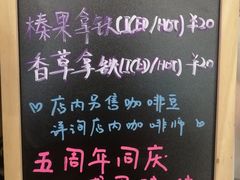 榛果拿铁(ICED/HOT) ¥20
香草拿铁(ICED/HOT) ¥20
店内另售咖啡豆
详询店内咖啡师
五周年同庆